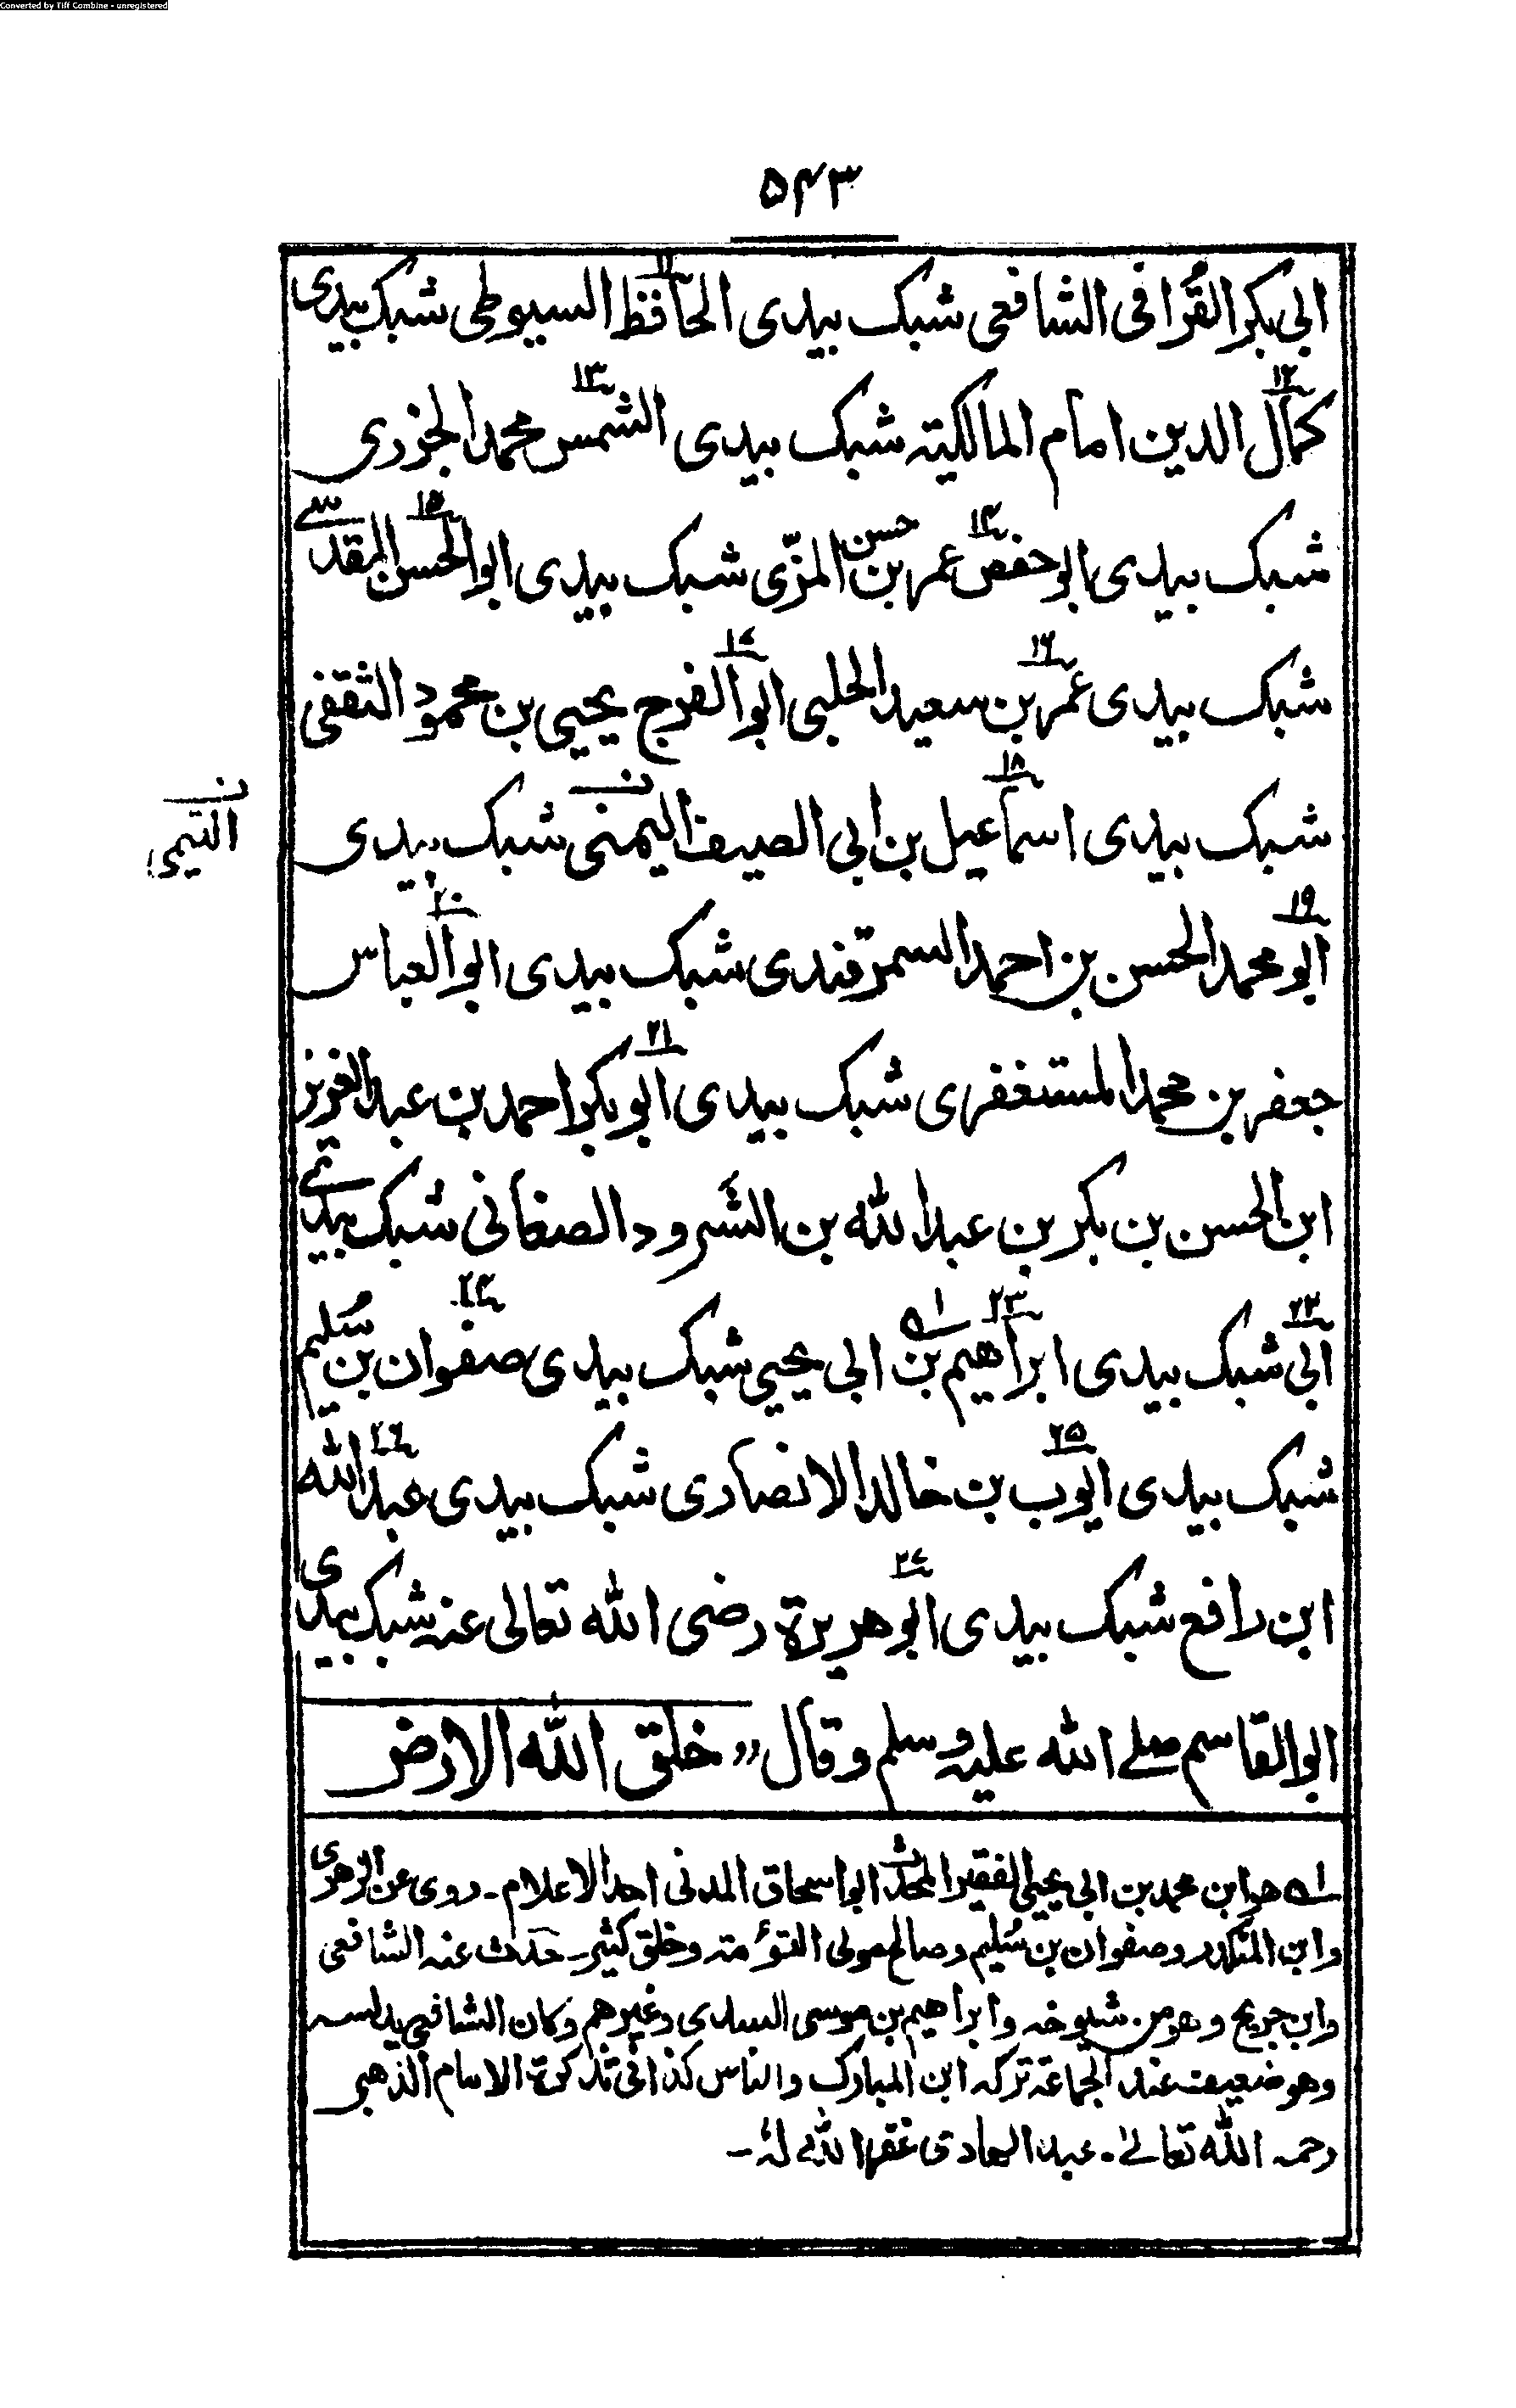 Converted by Tiff Combine - unregistered
۵۴۳
ابی بکر القرافی الشافعی شبک بیدی الحافظ السیوطی شبک بیدی
کمال الدین امام المالکیتہ شبک بیدی الشمس محمد الجزری
شبک بیدی ابو حفص عمر بن حسن المزّی شبک بیدی ابو الحسن المقدسے
شبک بیدی عمر بن سعید الحلبی ابو الفرج یحیی بن محمود الثقفی
شبک بیدی اسماعیل بن ابی الصیف الیمنی شبک بیدی
التیمی
ابو محمد الحسن بن احمد السمرقندی شبک بیدی ابو العباس
جعفر بن محمد المستغفری شبک بیدی ابو بکر احمد بن عبد العزیز
ابن الحسن بن بکر بن عبد اللہ بن الشرود الصغانی شبک بیدے
ابی شبک بیدی ابراھیم بن ابی یحیی شبک بیدی صفوان بن سُلیم
شبک بیدی ایوب بن خالد الانصاری شبک بیدی عبد اللہ
ابن رافع شبک بیدی ابو ھریرۃ رضی اللہ تعالی عنہ شبک بیدی
ابو القاسم صلے اللہ علیہ وسلم وقال ”خلق اللہ الارض
لہ ھو ابن محمد بن ابی یحیی الفقیر المحدث ابو اسحاق المدنی احد الاعلام۔ روی عن الزھری
وابن المنکدر وصفوان بن سُلیم وصالح مولی التوٴمتہ وخلق کثیر۔ حدث عنہ الشافعی
وابن جریج وھو من شیوخہ وابراھیم بن موسی السدی وغیرھم وکان الشافعی یدلسہ
وھو ضعیف عند الجماعۃ ترکہ ابن المبارک والناس کذا فی تذکرۃ الامام الذھبی
رحمہ اللہ تعالیٰ۔ عبد الھادی غفر اللہ لہٗ۔